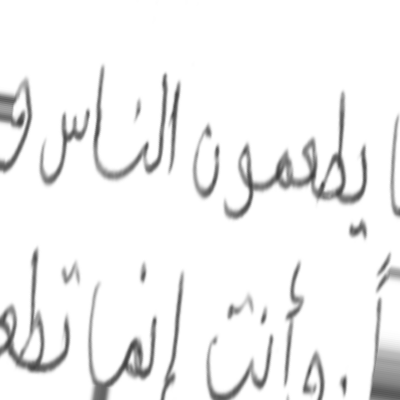 يطعمون الناس
وأنت إنما تطع